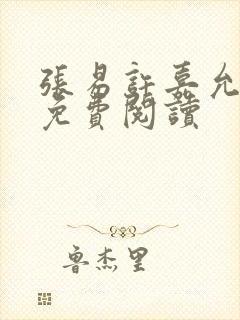 張易許嘉允
免費閱讀
魯杰里